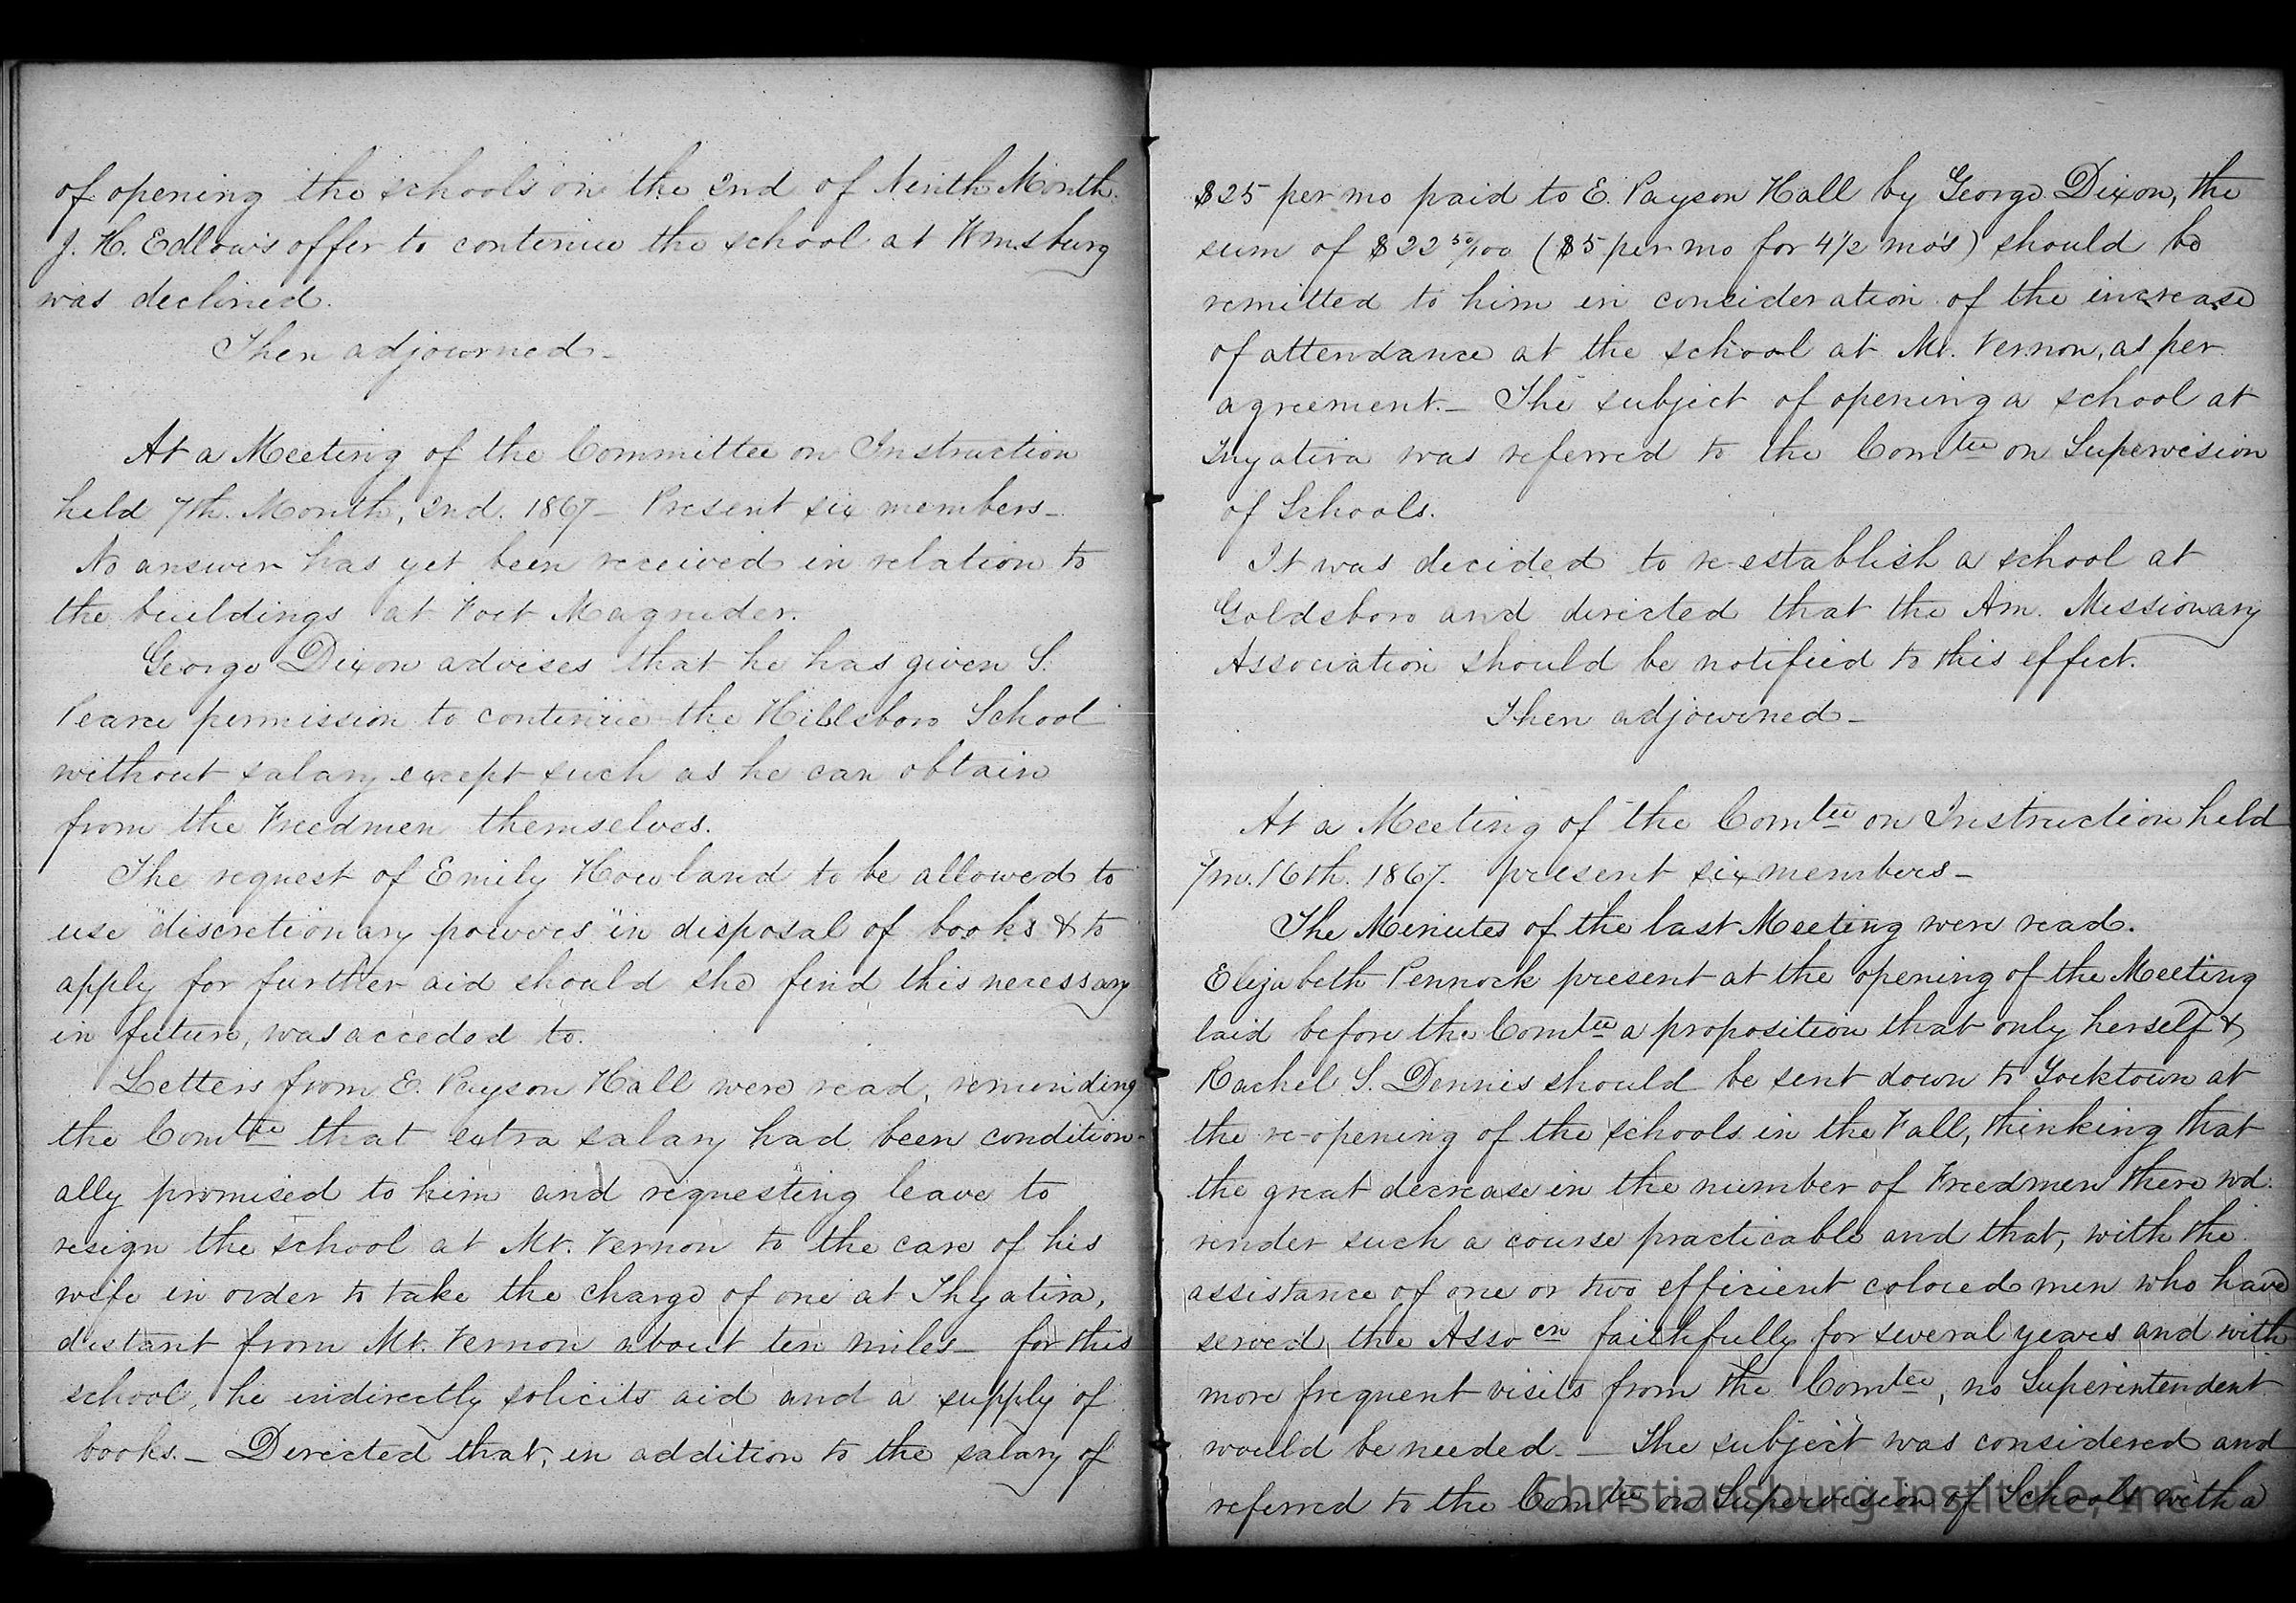 of opening the schools on the 2nd of Ninth Month.
J. H. Edlow's offer to continue the school at Wmsburg
was declined.
Then adjourned –
At a Meeting of the Committee on Instruction
held 7th. Month, 2nd. 1867 – Present six members –
No answer has yet been received in relation to
the buildings at Fort Magruder.
George Dixon advises that he has given S.
Pearce permission to continue the Hillsboro School
without salary except such as he can obtain
from the Freedmen themselves.
The request of Emily Howland to be allowed to
use "discretionary powers" in disposal of books & to
apply for further aid should she find this necessary
in future, was acceded to.
Letters from E. Payson Hall were read, reminding
the Comtee that extra salary had been condition-
ally promised to him and requesting leave to
resign the school at Mt. Vernon to the care of his
wife in order to take the charge of one at Thyatira,
distant from Mt. Vernon about ten miles – for this
school, he indirectly solicits aid and a supply of
books. – Directed that, in addition to the salary of
$25 per mo paid to E. Payson Hall by George Dixon, the
sum of $22 50/100 ($5 per mo for 4 1/2 mo's) should be
remitted to him in consideration of the increase
of attendance at the school at Mt. Vernon, as per
agreement. – The subject of opening a school at
Thyatira was referred to the Comtee on Supervision
of Schools.
It was decided to re-establish a school at
Goldsboro and directed that the Am. Missionary
Association should be notified to this effect.
Then adjourned –
At a Meeting of the Comtee on Instruction held
7m. 16th. 1867. present six members –
The Minutes of the last Meeting were read.
Elizabeth Pennock present at the opening of the Meeting
laid before the Comtee a proposition that only herself &
Rachel S. Dennis should be sent down to Yorktown at
the re-opening of the schools in the Fall, thinking that
the great decrease in the number of Freedmen there wd.
render such a course practicable and that, with the
assistance of one or two efficient colored men who have
served the Assocn faithfully for several years and with
more frequent visits from the Comtee, no Superintendent
would be needed. – The subject was considered and
referred to the Comtee on Supervision of Schools with a
Christiansburg Institute, Inc